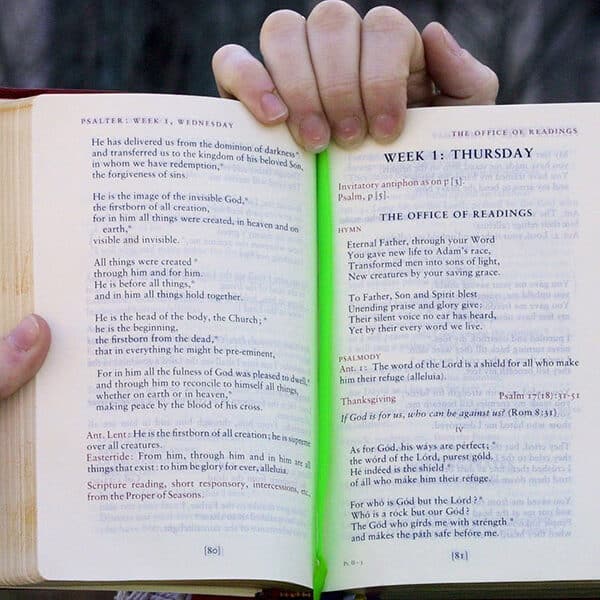 PSALTER: WEEK 1, WEDNESDAY
He has delivered us from the dominion of darkness*
and transferred us to the kingdom of his beloved Son,
in whom we have redemption,*
the forgiveness of sins.
He is the image of the invisible God,*
the firstborn of all creation,
for in him all things were created, in heaven and on
earth,*
visible and invisible.
All things were created*
through him and for him.
He is before all things,*
and in him all things hold together.
He is the head of the body, the Church;*
he is the beginning,
the firstborn from the dead,*
that in everything he might be pre-eminent,
For in him all the fulness of God was pleased to dwell,*
and through him to reconcile to himself all things,
whether on earth or in heaven,*
making peace by the blood of his cross.
Ant. Lent: He is the firstborn of all creation; he is supreme
over all creatures.
Eastertide: From him, through him and in him are all
things that exist: to him be glory for ever, alleluia.
Scripture reading, short responsory, intercessions, etc.,
from the Proper of Seasons.
[80]
THE OFFICE OF READINGS
WEEK 1: THURSDAY
Invitatory antiphon as on p [3].
Psalm, p [5].
THE OFFICE OF READINGS
HYMN
Eternal Father, through your Word
You gave new life to Adam's race,
Transformed men into sons of light,
New creatures by your saving grace.
To Father, Son and Spirit blest
Unending praise and glory give:
Their silent voice no ear has heard,
Yet by their every word we live.
PSALMODY
Ant. 1: The word of the Lord is a shield for all who make
him their refuge (alleluia).
Thanksgiving Psalm 17(18):31-51
If God is for us, who can be against us? (Rom 8:31)
IV
As for God, his ways are perfect;*
the word of the Lord, purest gold.
He indeed is the shield*
of all who make him their refuge.
For who is God but the Lord?*
Who is a rock but our God?
The God who girds me with strength*
and makes the path safe before me.
[81]